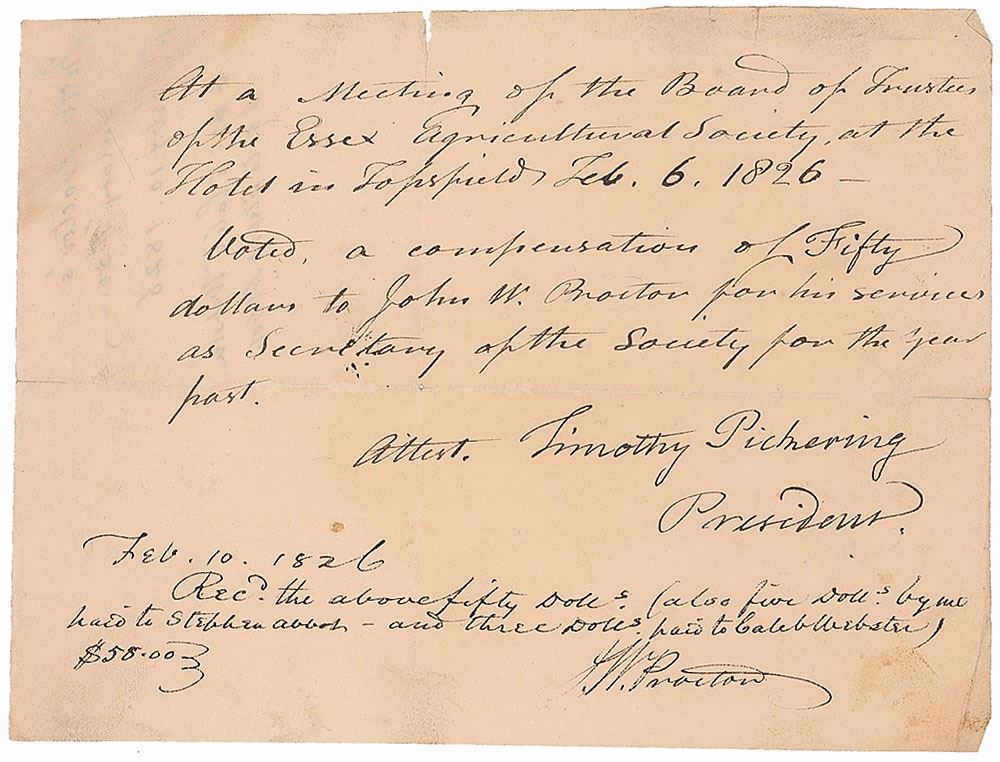 At a Meeting of the Board of Trustees
of the Essex Agricultural Society, at the
Hotel in Topsfield Feb. 6. 1826 —
Voted, a compensation of Fifty
dollars to John W. Proctor for his services
as Secretary of the Society for the year
past.
Attest. Timothy Pickering
President.
Feb. 10. 1826
Recd. the above fifty Dolls. (also five Dolls. by me
paid to Stephen Abbot - and three Dolls. paid to Caleb Webster)
$58.00
J. W. Proctor